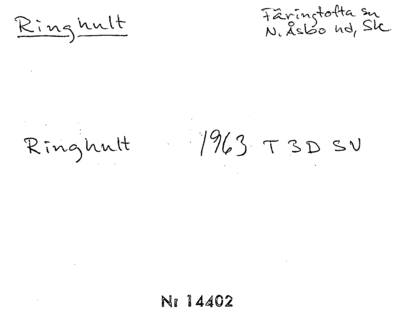 Ringhult
Färingtofta sn
N. Åsbo hd, Sk
Ringhult 1963 T 3D SV
Nr 14402